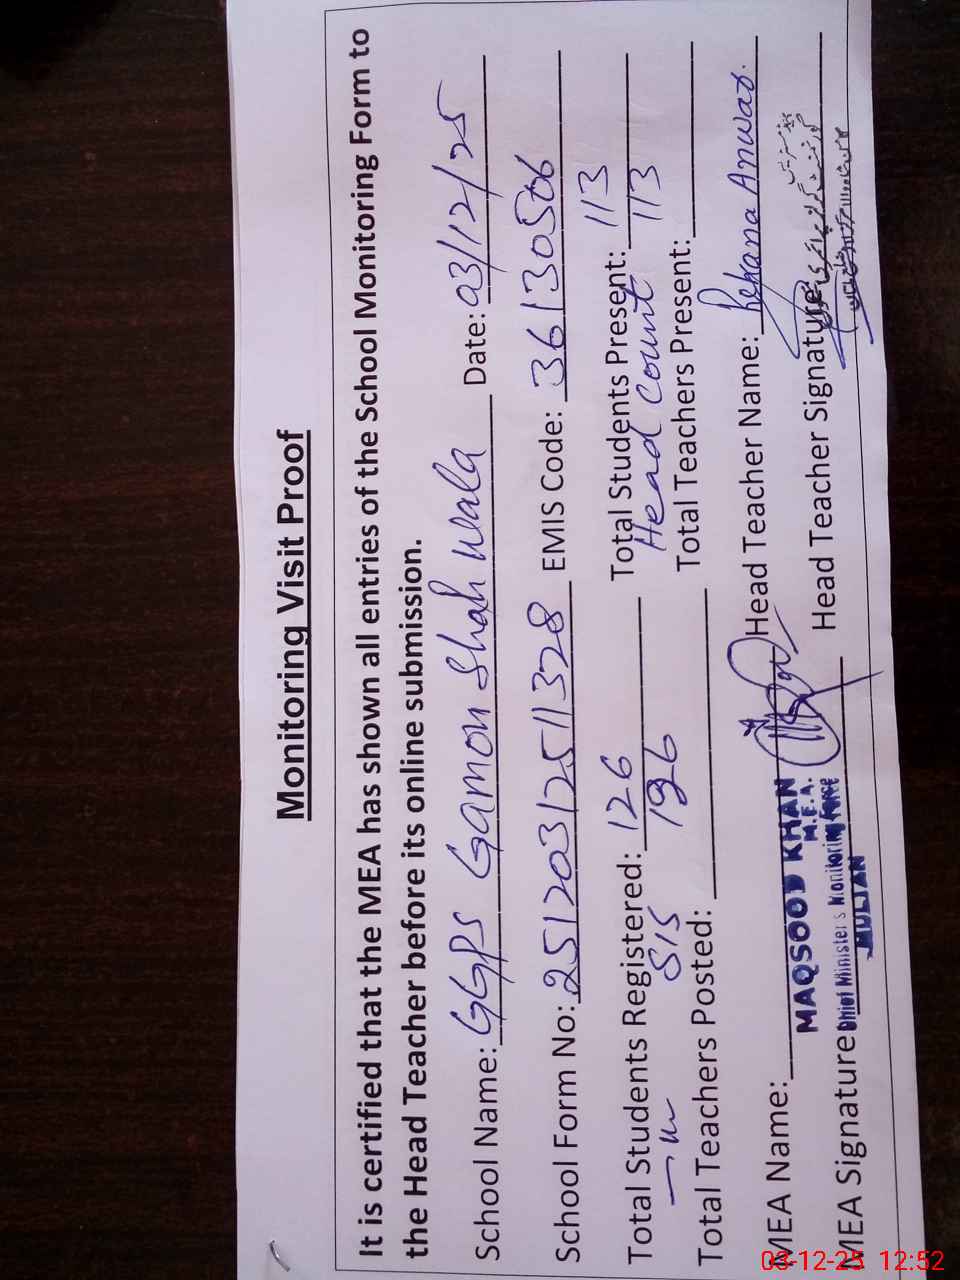 Monitoring Visit Proof
It is certified that the MEA has shown all entries of the School Monitoring Form to
the Head Teacher before its online submission.
School Name: GGPS Gamon Shah Wala Date: 03/12/25
School Form No: 25120312511328 EMIS Code: 36130506
Total Students Registered: 126 Total Students Present: 113
SIS 126 Head Count 113
Total Teachers Posted: Total Teachers Present:
MEA Name: MAQSOOD KHAN Head Teacher Name: Rehana Anwar.
M.E.A.
MEA Signature Chief Minister's Monitoring Force Head Teacher Signature:
MULTAN
03-12-25 12:52